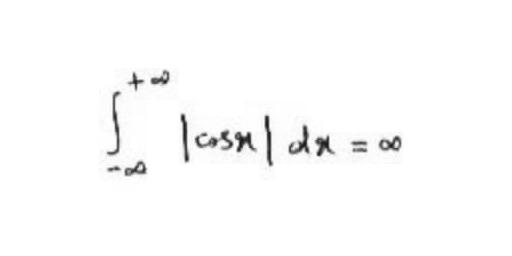 ∫_{-∞}^{+∞} |cosx| dx = ∞